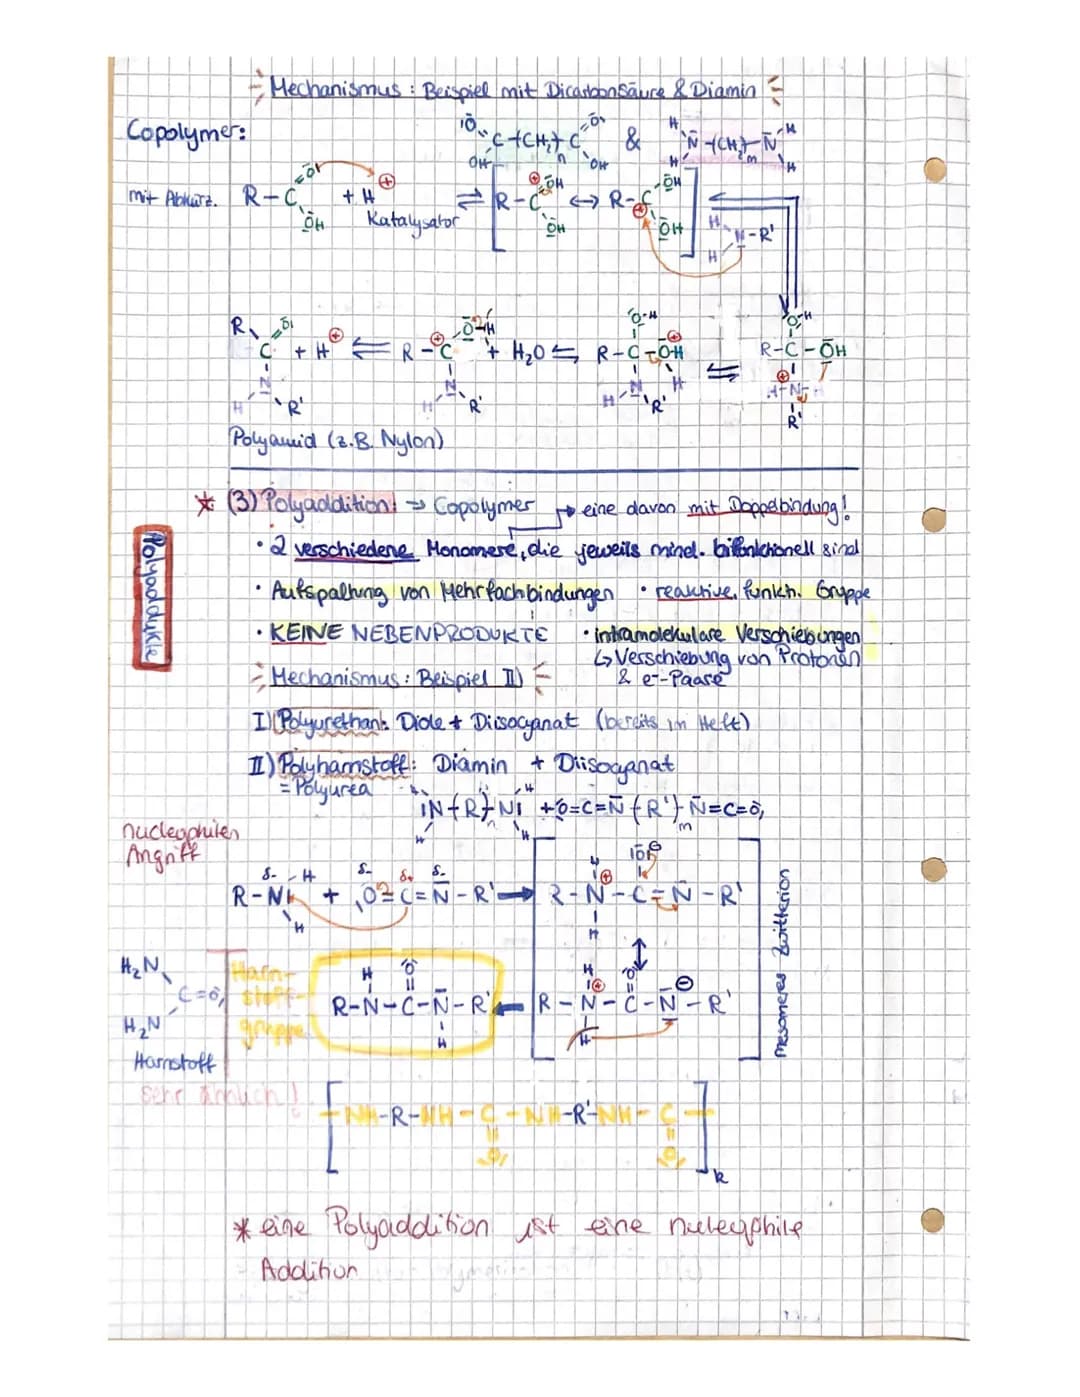 Mechanismus : Beispiel mit Dicarbonsäure & Diamin
Copolymer:
|O C-(CH₂)n-C O| OH OH & H H N̄-(CH₂)m-N̄ H H
mit Abkürz. R-C O| OH + H⊕ ⇌ [R-C⊕ OH OH ↔ R-C⊕ OH OH]
Katalysator
H H N-R'
R C O| N H R' + H⊕ ⇌ R-C⊕ O-H N H R' + H₂O ⇌ R-C-O⊕-H O-H H N H R' ⇌ R-C-OH O-H H-N⊕-H R'
Polyamid (z.B. Nylon)
* (3) Polyaddition: → Copolymer → eine davon mit Doppelbindung!
• 2 verschiedene Monomere, die jeweils mind. bifunktionell sind
• Aufspaltung von Mehrfachbindungen • reaktive, funkt. Gruppe
• KEINE NEBENPRODUKTE • intramolekulare Verschiebungen
↳ Verschiebung von Protonen
& e⁻-Paare
Polyaddukte
Mechanismus : Beispiel II)
I) Polyurethan: Diole + Diisocyanat (bereits im Heft)
II) Polyharnstoff: Diamin + Diisocyanat
= Polyurea
H H |N-(R)n-N| H H + O=C=N̄-(R')m-N̄=C=O
nucleophilen
Angriff
δ- δ- δ+ δ-
R-N| H H + O=C=N̄-R' → R-N⊕-C=N̄-R' H H |O|⊖
↕
R-N-C-N̄-R' H O H ← R-N⊕-C-N⊖-R' H H O
mesomeres Zwitterion
Harn-
stoff-
gruppe
H₂N
C=O
H₂N
Harnstoff
sehr ähnlich!
[-NH-R-NH-C-NH-R'-NH-C-]k
O O
* eine Polyaddition ist eine nucleophile
Addition